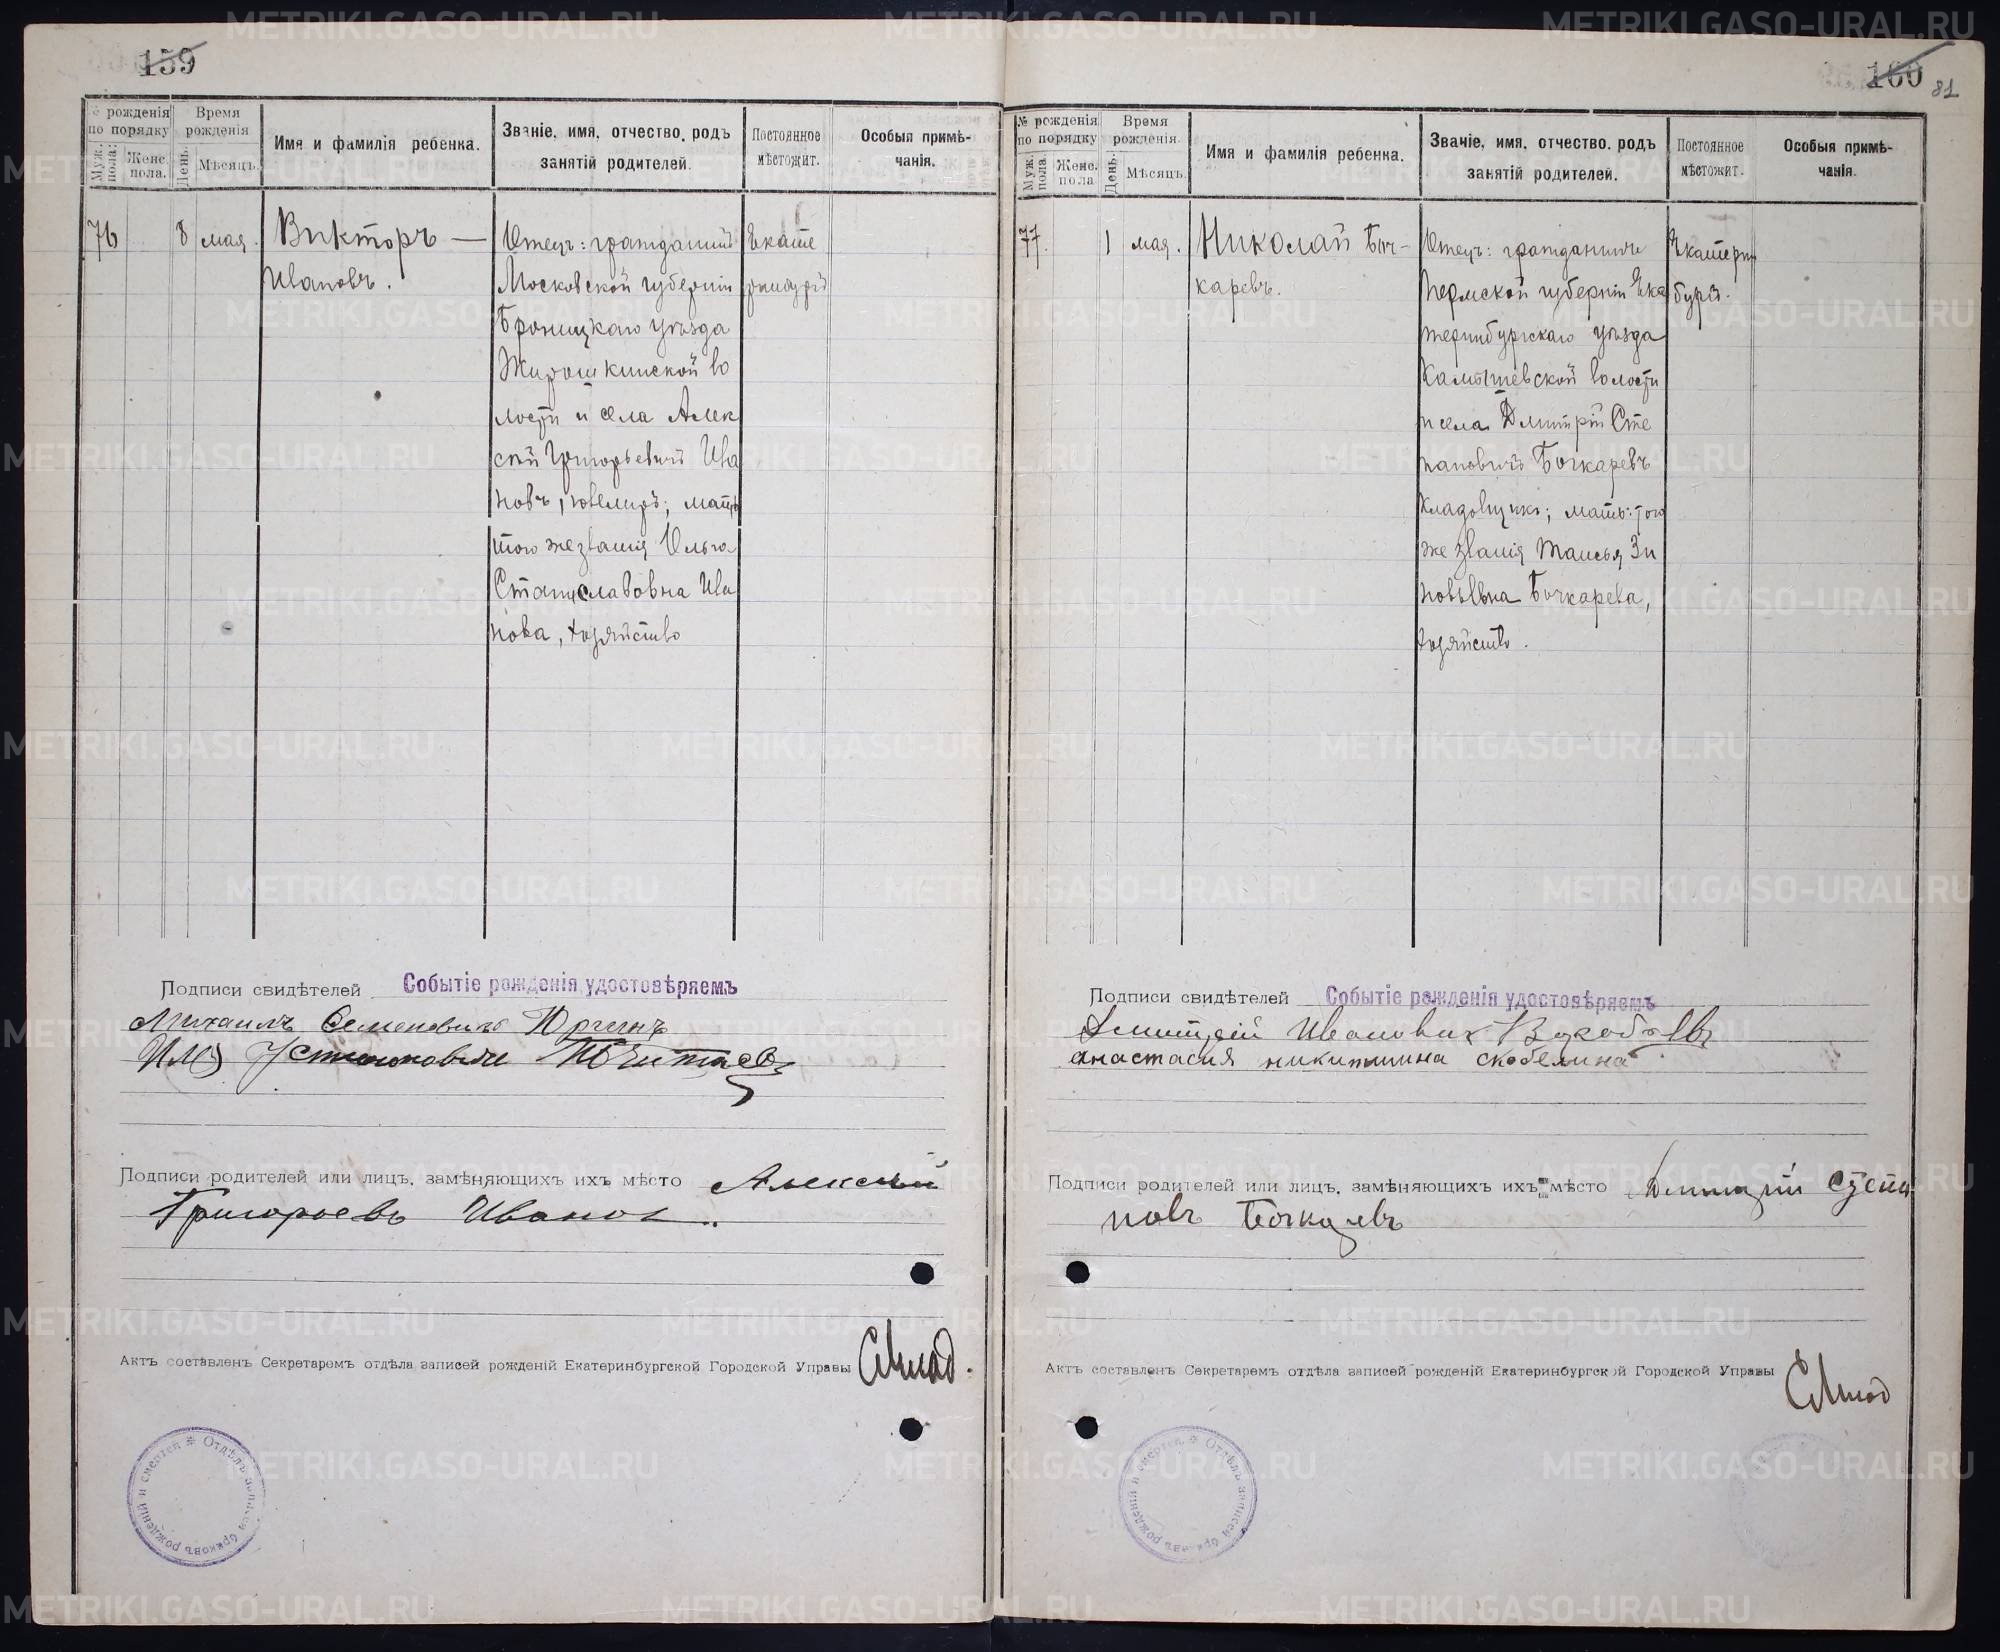 159
№ рожденія по порядку
Муж. пола.
Женс. пола.
Время рожденія
День.
Мѣсяцъ.
Имя и фамилія ребенка.
Званіе, имя, отчество, родъ занятій родителей.
Постоянное мѣстожит.
Особыя примѣчанія.
76
8
мая.
Викторъ —
Ивановъ.
Отецъ: гражданинъ
Московской губерніи
Бронницкаго уѣзда
Жирошкинской во
лости и села Алек
сѣй Григорьевичъ Ива
новъ, ювелиръ; мать
того же званія Ольга
Станиславовна Ива
нова, хозяйство
Екате
ринбургъ
Подписи свидѣтелей Событіе рожденія удостовѣряемъ
Михаилъ Семеновичъ Юргенъ
Илья Устиновичъ
Подписи родителей или лицъ, замѣняющихъ ихъ мѣсто Алексѣй
Григорьевъ Иванов
Актъ составленъ Секретаремъ отдѣла записей рожденій Екатеринбургской Городской Управы
Отдѣлъ записей браковъ рожденій и смертей
160
81
№ рожденія по порядку
Муж. пола.
Женс. пола
Время рожденія.
День.
Мѣсяцъ.
Имя и фамилія ребенка.
Званіе, имя, отчество, родъ занятій родителей.
Постоянное мѣстожит.
Особыя примѣчанія.
77.
1
мая.
Николай Боч-
каревъ.
Отецъ: гражданинъ
Пермской губерніи Ека
теринбургскаго уѣзда
Камышевской волости
и села Дмитрій Сте
пановичъ Бочкаревъ
кладовщикъ; мать: того
же званія Таисья Зи
новьевна Бочкарева,
хозяйство.
Екатерин
бургъ.
Подписи свидѣтелей Событіе рожденія удостовѣряемъ
Дмитрій Ивановичъ
Анастасия никитишна скобелина
Подписи родителей или лицъ, замѣняющихъ ихъ мѣсто Дмитрій Степа
новъ Бочкаревъ
Актъ составленъ Секретаремъ отдѣла записей рожденій Екатеринбургской Городской Управы
Отдѣлъ записей браковъ рожденій и смертей
METRIKI.GASO-URAL.RU